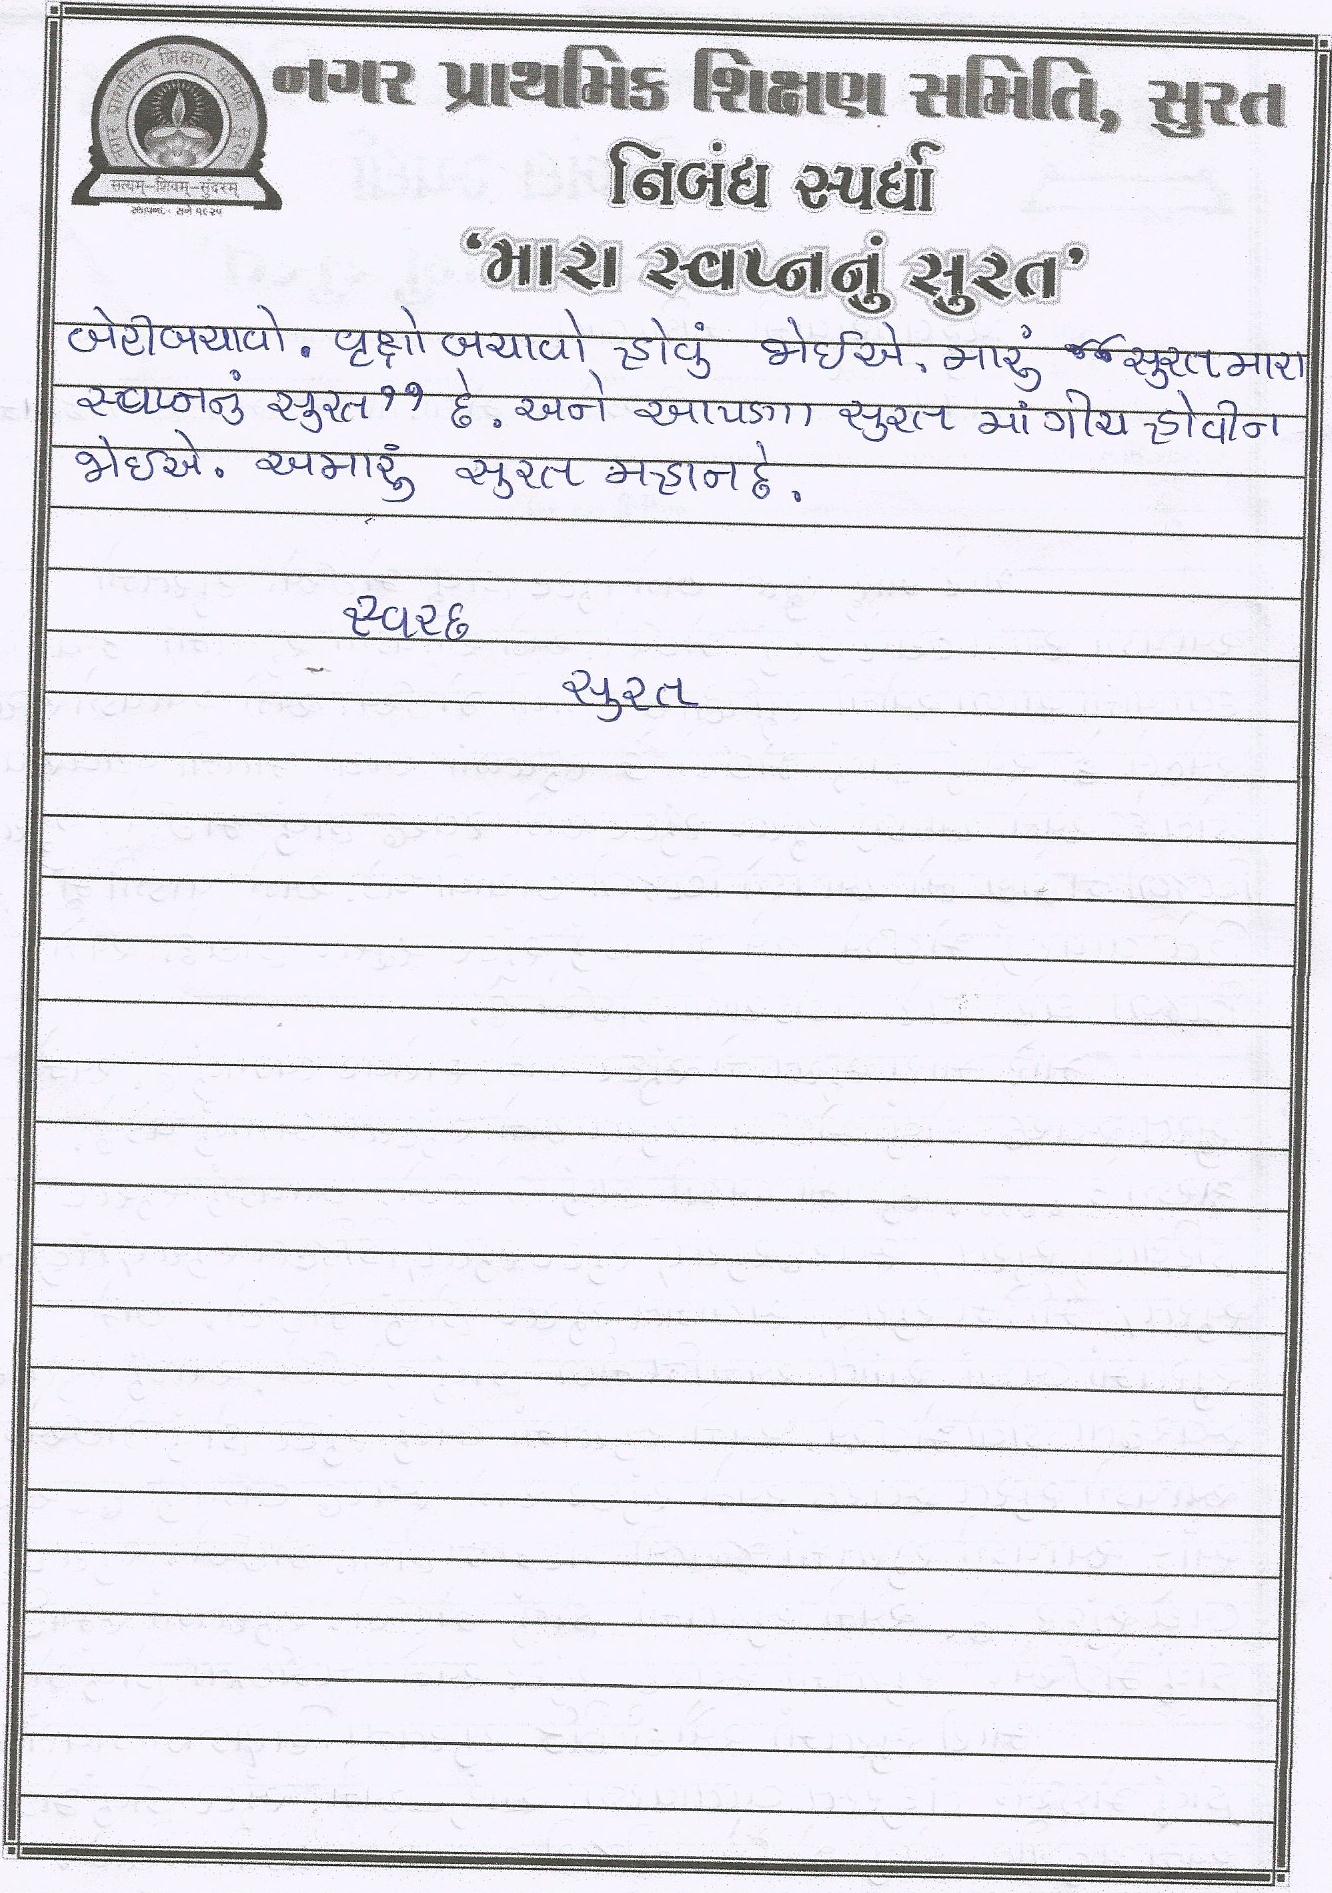 નગર પ્રાથમિક શિક્ષણ સમિતિ, સુરત
નગર પ્રાથમિક શિક્ષણ સમિતિ સુરત
સત્યમ્-શિવમ્-સુંદરમ્
સ્થાપના : સને ૧૯૨૫
નિબંધ સ્પર્ધા
‘મારા સ્વપ્નનું સુરત’
બેટીબચાવો. વૃક્ષો બચાવો હોવું જોઈએ. મારું “સુરત મારા
સ્વપ્નનું સુરત” છે. અને આપણા સુરત માં ગીચ હોવીન
જોઈએ. અમારું સુરત મહાન છે.
સ્વચ્છ
સુરત